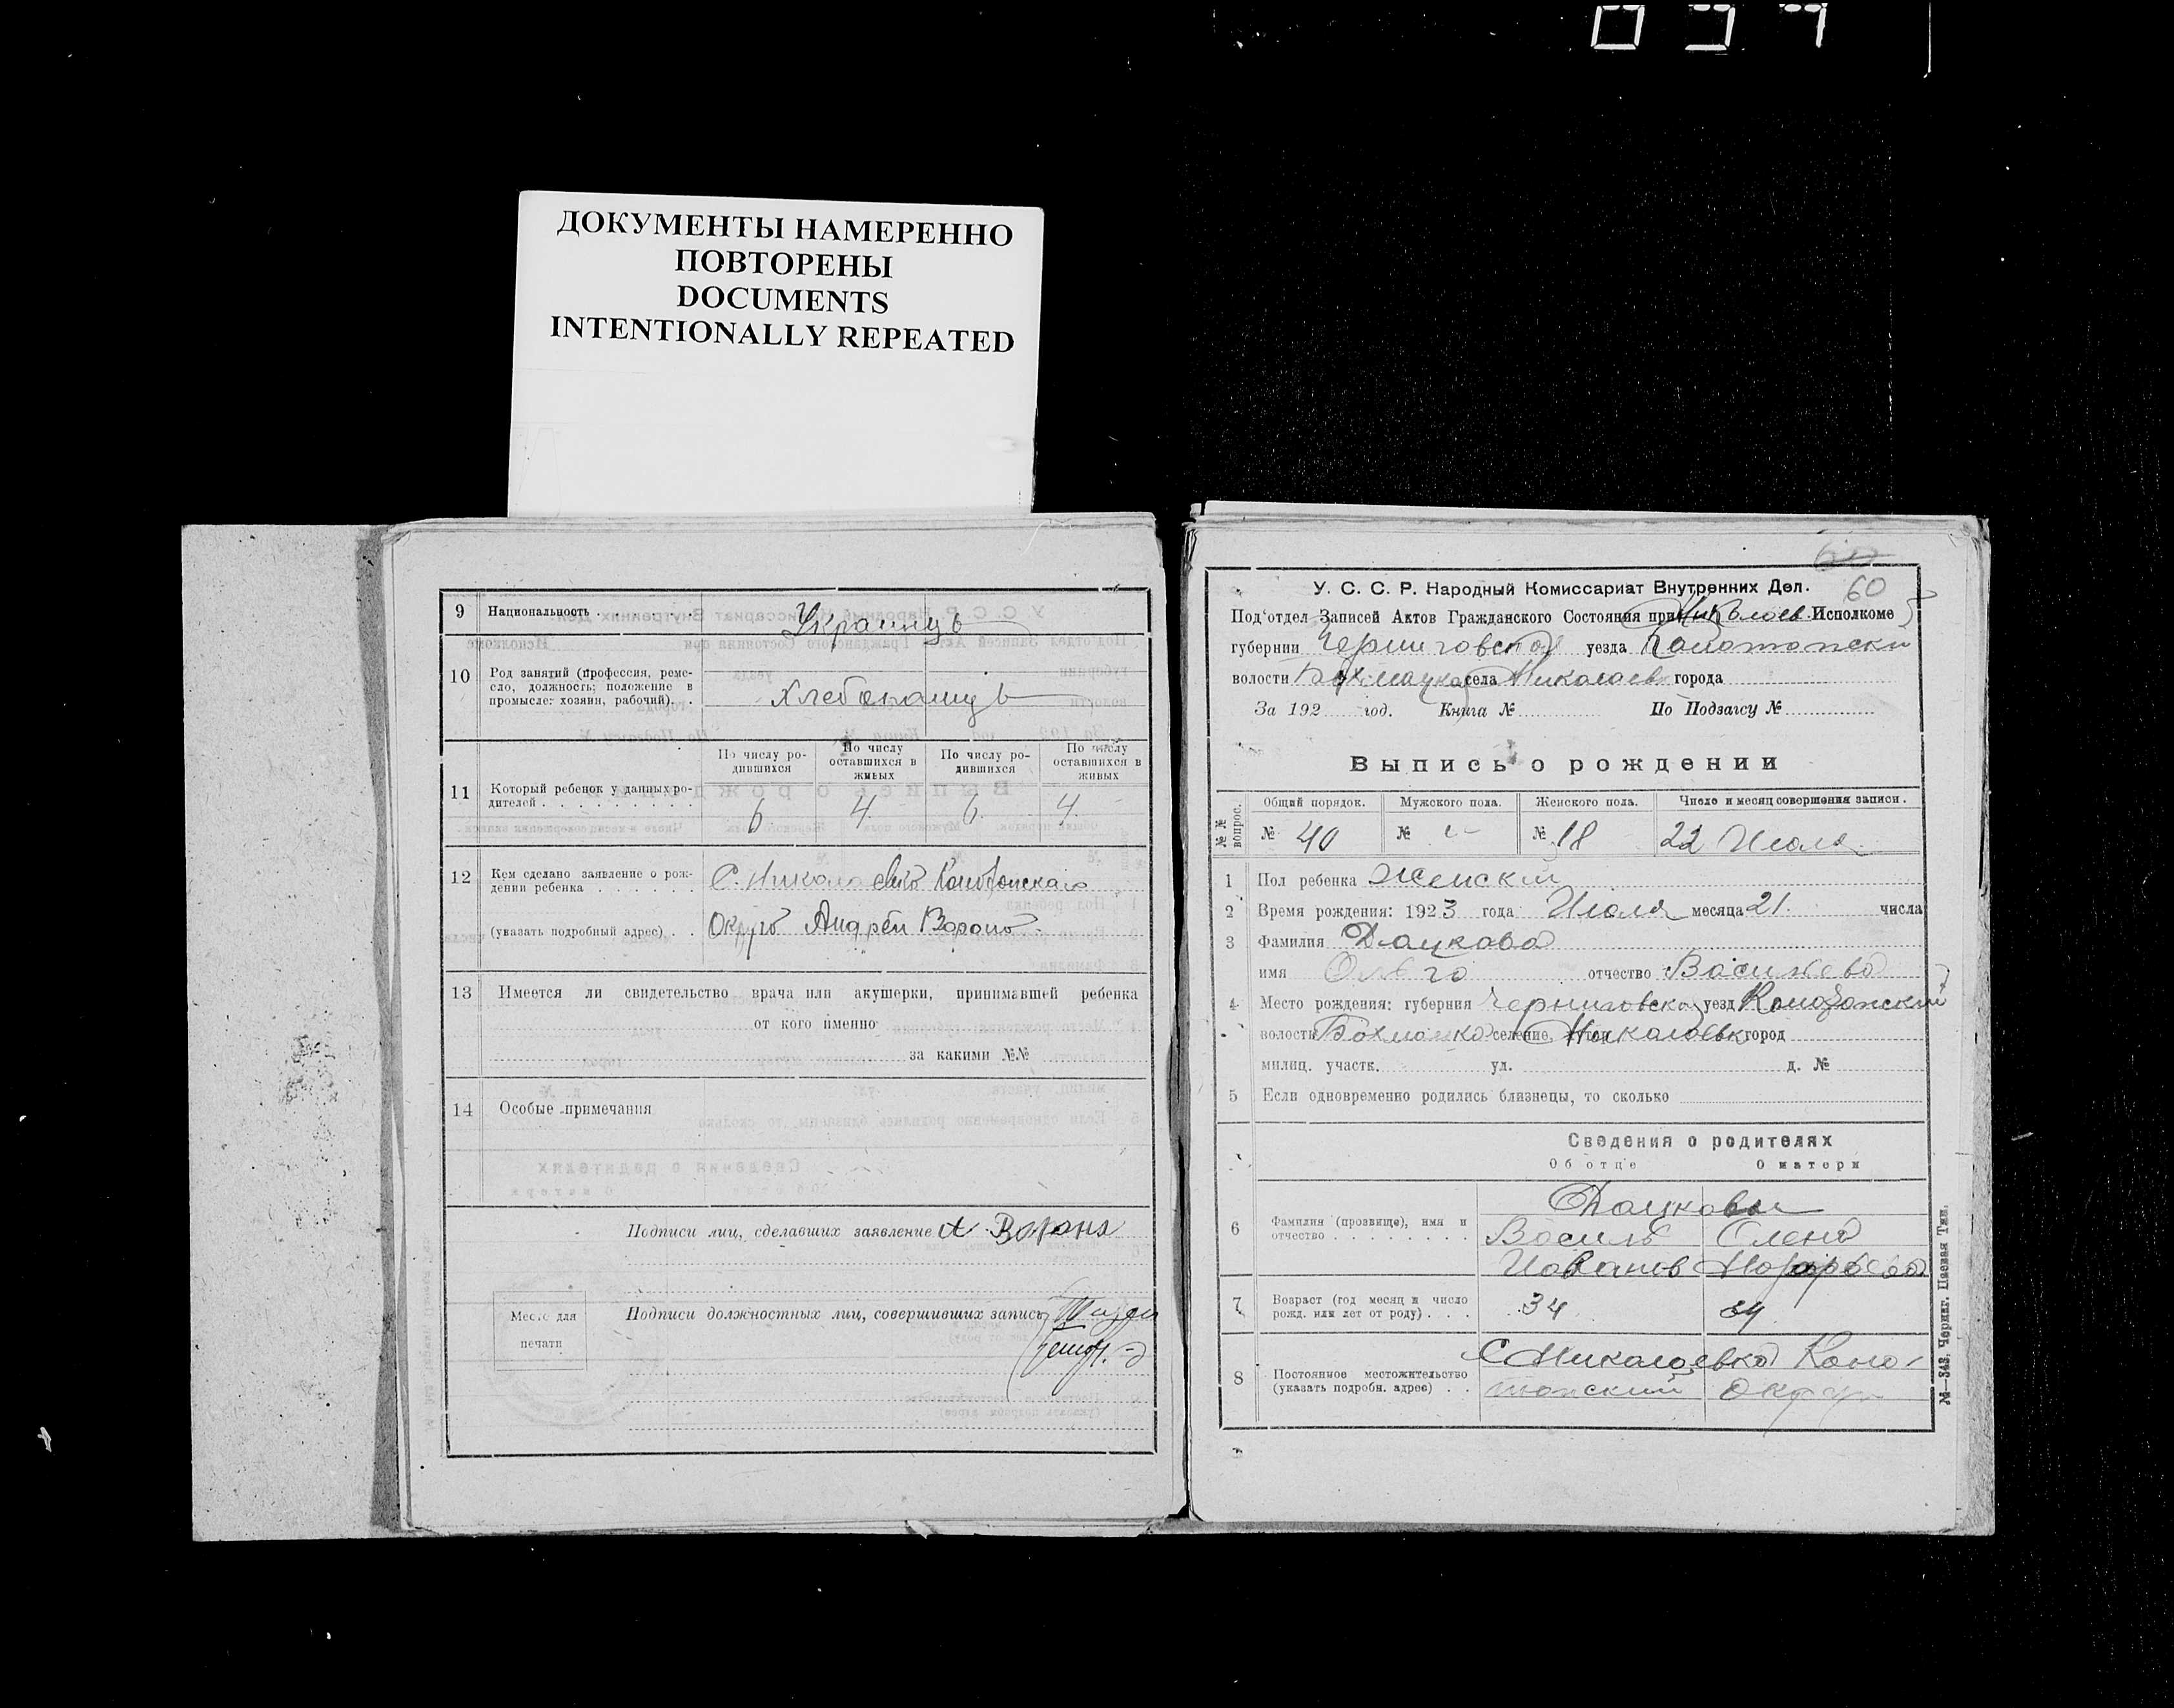 ДОКУМЕНТЫ НАМЕРЕННО
ПОВТОРЕНЫ
DOCUMENTS
INTENTIONALLY REPEATED
9 Национальность . . . . . . . Украинцъ
10 Род занятий (профессия, ремесло, должность; положение в промысле: хозяин, рабочий). .
11 Который ребенок у данных родителей . . . . . . . . .
По числу родившихся По числу оставшихся в живых По числу родившихся По числу оставшихся в живых
6 4. 6. 4.
12 Кем сделано заявление о рождении ребенка . . . . . .
(указать подробный адрес) . . Округъ Андрей
13 Имеется ли свидетельство врача или акушерки, принимавшей ребенка
от кого именно
за какими №№
14 Особые примечания
Подписи лиц, сделавших заявление А Ворона
Место для печати
Подписи должностных лиц, совершивших запись
60
У. С. С. Р. Народный Комиссариат Внутренних Дел.
Под'отдел Записей Актов Гражданского Состояния при Николаев. Исполкоме
губернии Черниговской уезда
волости села Николаев города
За 192 год. Книга № По Подзагсу №
Выпись о рождении
№№ вопрос. Общий порядок. Мужского пола. Женского пола. Число и месяц совершения записи.
№ 40 № – № 18 22 Июля
1 Пол ребенка Женский
2 Время рождения: 1923 года Июля месяца 21. числа
3 Фамилия Дацкова
имя Ольга отчество
4 Место рождения: губерния уезд
волость селение, хутор город
милиц. участк. ул. д. №
5 Если одновременно родились близнецы, то сколько
Сведения о родителях
Об отце О матери
6 Фамилия (прозвище), имя и отчество . . . . . . . .
Дацковы
Василь Олена
7 Возраст (год месяц и число рожд. или лет от роду) . . . 34 34
8 Постоянное местожительство (указать подробн. адрес) . .
С Николаевка Коно-
топский Округ
№—343. Черниг. Цаевая Тип.